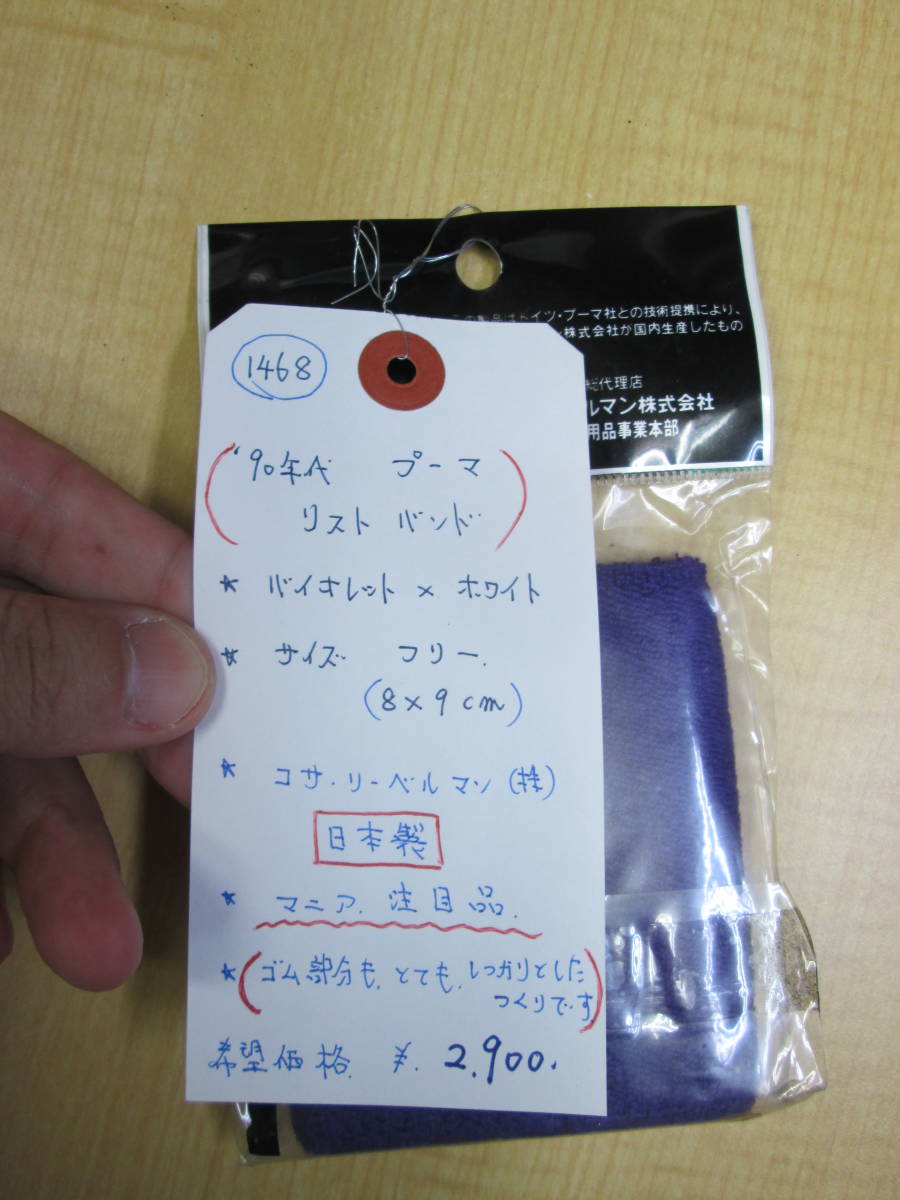 の製品はドイツ・プーマ社との技術提携により、
株式会社が国内生産したもの
総代理店
ルマン株式会社
用品事業本部
1468
'90年代 プーマ
リスト バンド
* バイオレット × ホワイト
* サイズ フリー.
(8×9cm)
* コサ・リーベルマン(株)
日本製
* マニア. 注目品.
* (ゴム部分も、とても、しっかりとした
つくりです)
希望価格. ¥. 2,900.